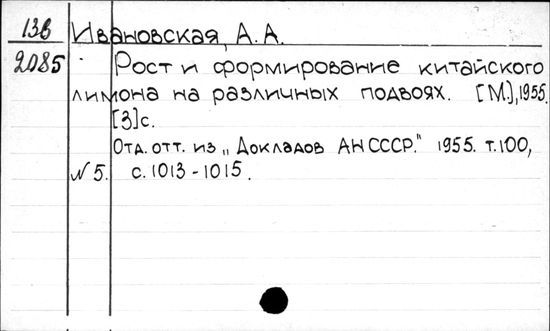 13в Ивановская, А.А.
2085 Рост и формирование китайского
лимона на различных подвоях. [М.], 1955.
[3]с.
Отд. отт. из „Докладов АН СССР." 1955. т.100,
N 5. с. 1013-1015.